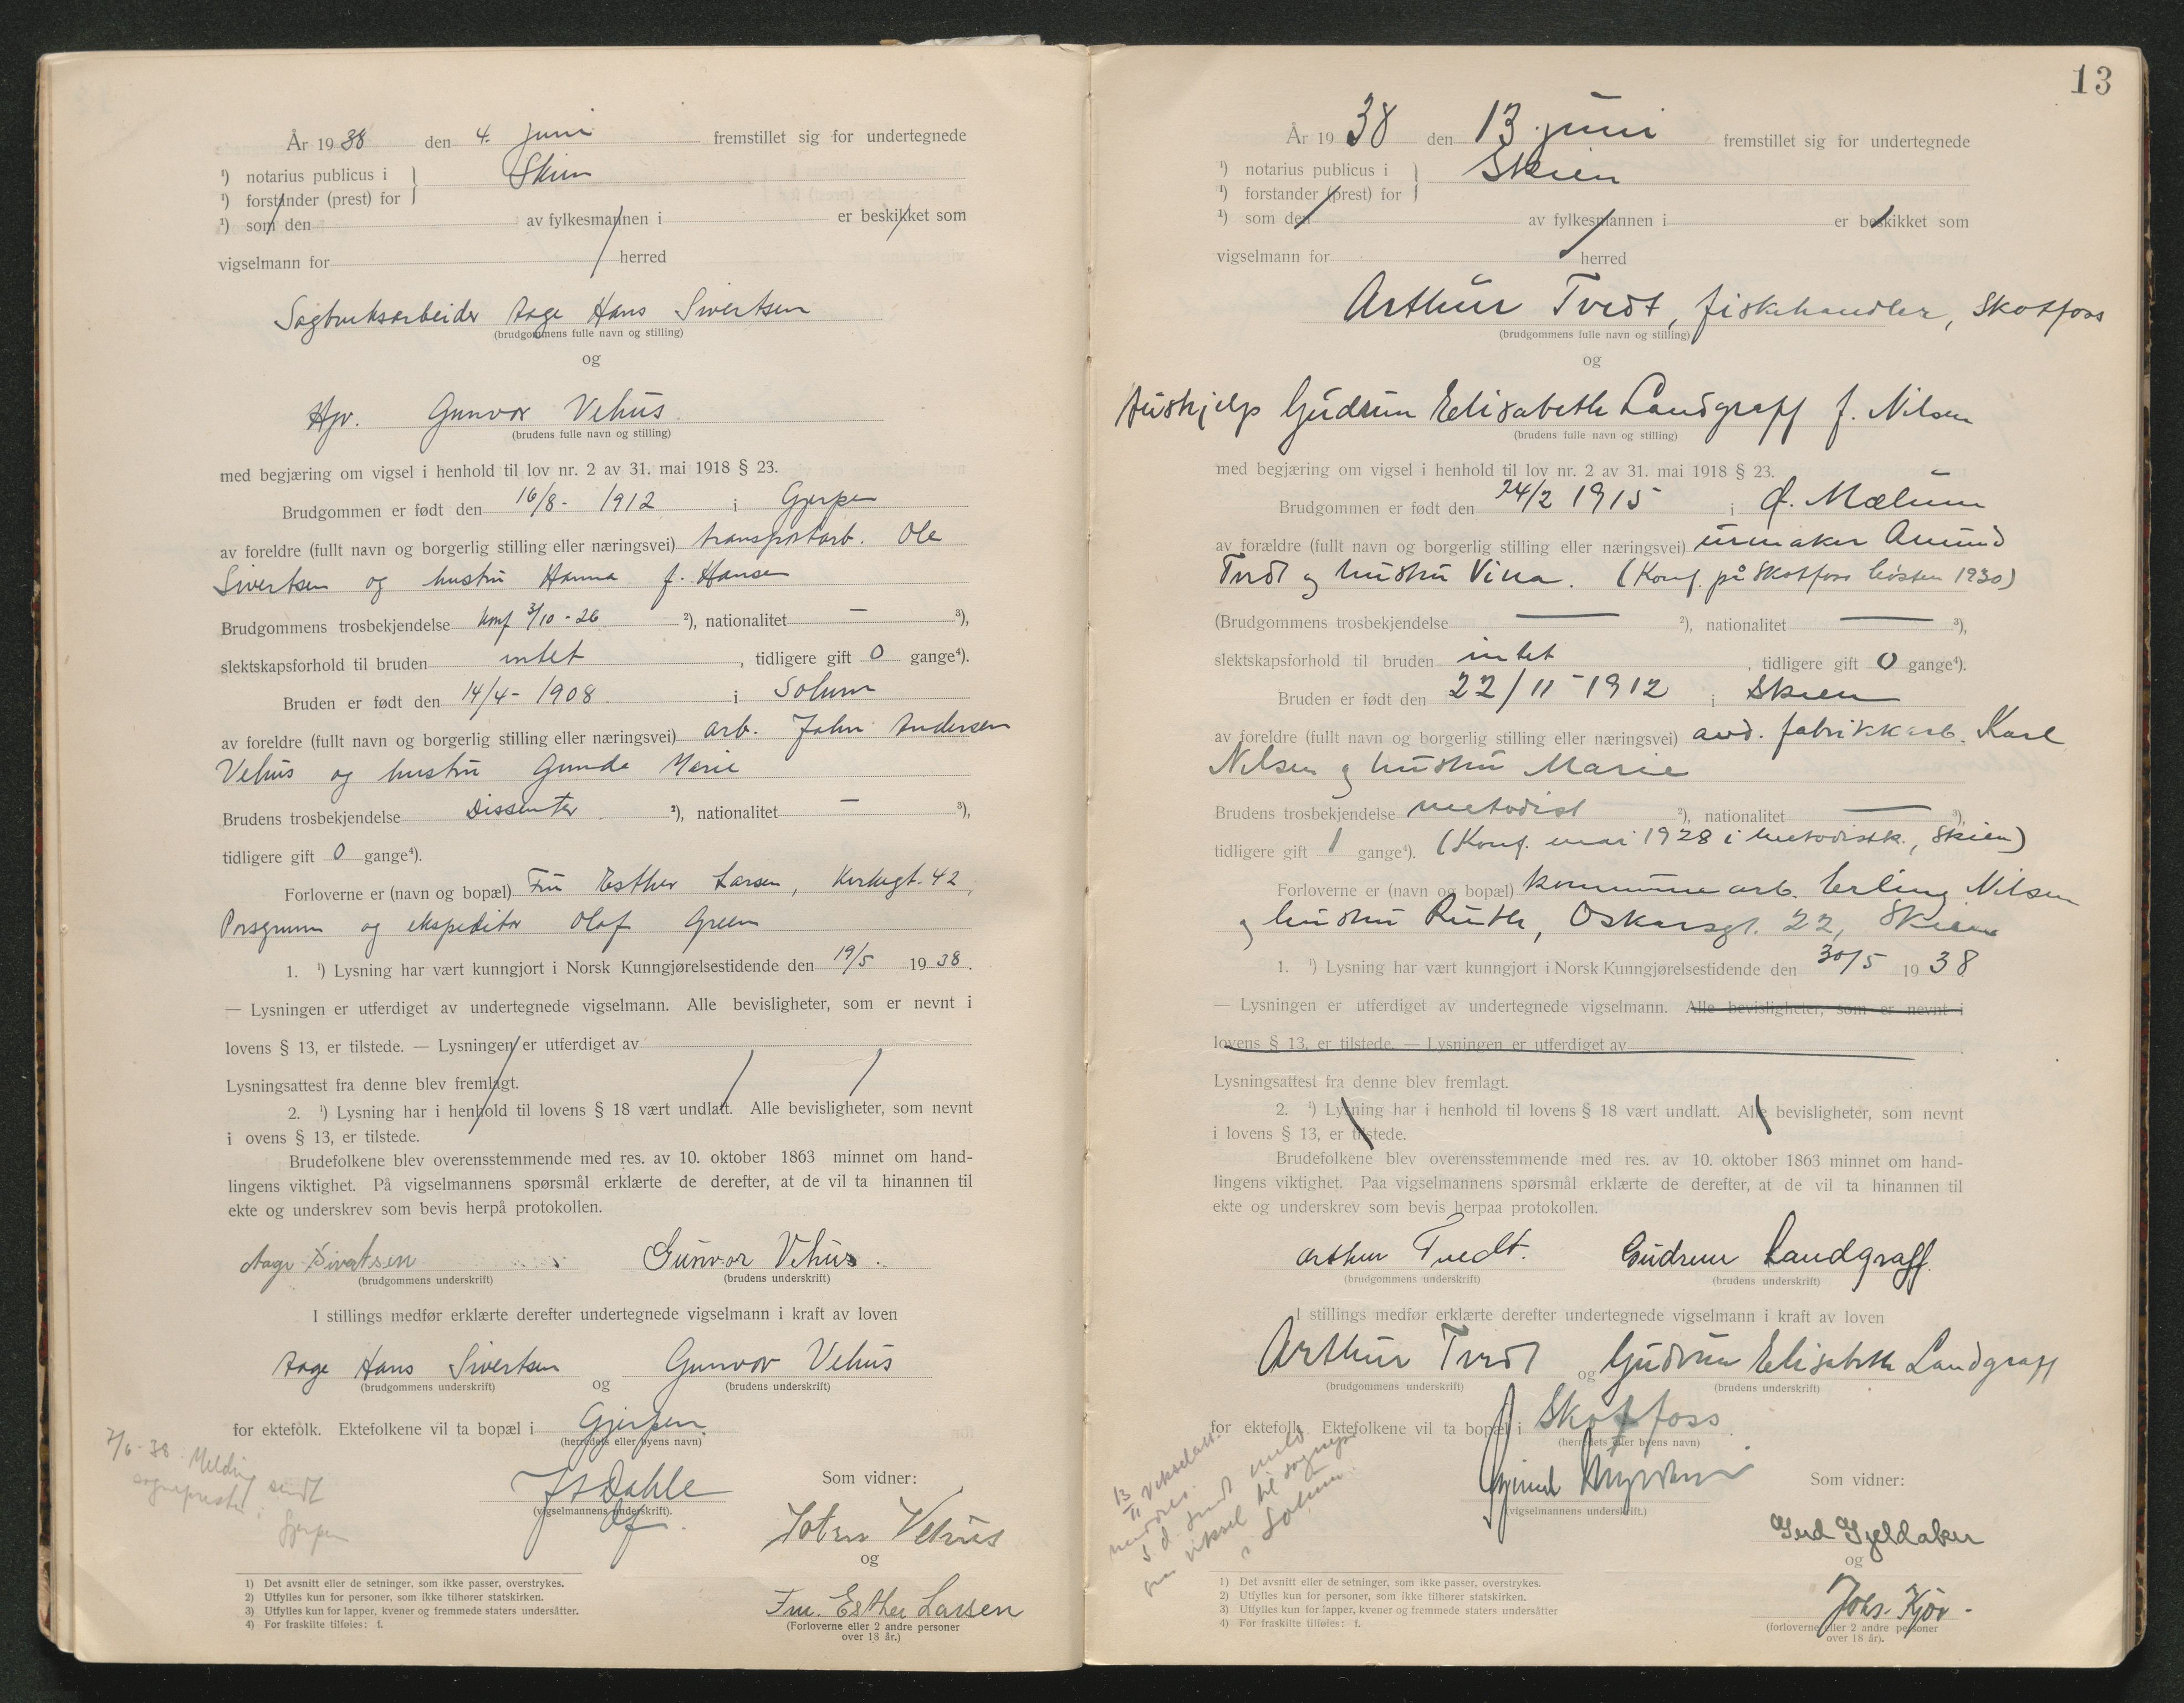 År 1938 den 4. juni fremstillet sig for undertegnede
¹) notarius publicus i } Skien
¹) forstander (prest) for
¹) som den av fylkesmannen i er beskikket som
vigselmann for herred
Sagbruksarbeider Aage Hans Sivertsen
(brudgommens fulle navn og stilling)
og
Hpr. Gunvor Vehus
(brudens fulle navn og stilling)
med begjæring om vigsel i henhold til lov nr. 2 av 31. mai 1918 § 23.
Brudgommen er født den 16/8 - 1912 i Gjerpen
av foreldre (fullt navn og borgerlig stilling eller næringsvei) transportarb. Ole
Sivertsen og hustru Hanna f. Hansen
Brudgommens trosbekjendelse konf 3/10 - 26 ²), nationalitet — ³),
slektskapsforhold til bruden intet , tidligere gift 0 gange⁴).
Bruden er født den 14/4 - 1908 i Solum
av foreldre (fullt navn og borgerlig stilling eller næringsvei) arb. John Andersen
Vehus og hustru Gunda Marie
Brudens trosbekjendelse Dissenter ²), nationalitet — ³),
tidligere gift 0 gange⁴).
Forloverne er (navn og bopæl) Fru Esther Larsen, Kirkegt. 42,
Porsgrunn og ekspeditør Olaf Green
1. ¹) Lysning har vært kunngjort i Norsk Kunngjørelsestidende den 19/5 1938.
— Lysningen er utferdiget av undertegnede vigselmann. Alle bevisligheter, som er nevnt i
lovens § 13, er tilstede. — Lysningen er utferdiget av
Lysningsattest fra denne blev fremlagt.
2. ¹) Lysning har i henhold til lovens § 18 vært undlatt. Alle bevisligheter, som nevnt
i ovens § 13, er tilstede.
Brudefolkene blev overensstemmende med res. av 10. oktober 1863 minnet om hand-
lingens viktighet. På vigselmannens spørsmål erklærte de derefter, at de vil ta hinannen til
ekte og underskrev som bevis herpå protokollen.
Aage Sivertsen Gunvor Vehus.
(brudgommens underskrift) (brudens underskrift)
I stillings medfør erklærte derefter undertegnede vigselmann i kraft av loven
Aage Hans Sivertsen og Gunvor Vehus
(brudgommens underskrift) (brudens underskrift)
for ektefolk. Ektefolkene vil ta bopæl i Gjerpen.
(herredets eller byens navn)
7/6 - 38. Melding sendt
sognepresten i
Gjerpen
Dahle
(vigselmannens underskrift).
Som vidner:
Vehus
og
Fru. Esther Larsen
(Forloverne eller 2 andre personer
over 18 år.)
1) Det avsnitt eller de setninger, som ikke passer, overstrykes.
2) Utfylles kun for personer, som ikke tilhører statskirken.
3) Utfylles kun for lapper, kvener og fremmede staters undersåtter.
4) For fraskilte tilføies: f.
13
År 1938 den 13. juni fremstillet sig for undertegnede
¹) notarius publicus i } Skien
¹) forstander (prest) for
¹) som den av fylkesmannen i er beskikket som
vigselmann for herred
Arthur Tvedt, fiskehandler, Skotfoss
(brudgommens fulle navn og stilling)
og
Aushjelp Gudrun Elisabeth Landgraff f. Nilsen
(brudens fulle navn og stilling)
med begjæring om vigsel i henhold til lov nr. 2 av 31. mai 1918 § 23.
Brudgommen er født den 24/2 1915 i Ø. Mælum
av forældre (fullt navn og borgerlig stilling eller næringsvei) urmaker Amund
Tvedt og hustru Vina. (Konf. på Skotfoss høsten 1930)
(Brudgommens trosbekjendelse — ²), nationalitet — ³),
slektskapsforhold til bruden intet , tidligere gift 0 gange⁴).
Bruden er født den 22/11 - 1912 i Skien
av foreldre (fullt navn og borgerlig stilling eller næringsvei) avd. fabrikkarb. Karl
Nilsen og hustru Marie
Brudens trosbekjendelse metodist ²), nationalitet — ³),
tidligere gift 1 gange⁴). (Konf. mai 1928 i metodistk., Skien)
Forloverne er (navn og bopæl) kommunearb. Erling Nilsen
og hustru Ruth, Oskarsgt. 22, Skien
1. ¹) Lysning har vært kunngjort i Norsk Kunngjørelsestidende den 30/5 1938
— Lysningen er utferdiget av undertegnede vigselmann. Alle bevisligheter, som er nevnt i
lovens § 13, er tilstede. — Lysningen er utferdiget av
Lysningsattest fra denne blev fremlagt.
2. ¹) Lysning har i henhold til lovens § 18 vært undlatt. Alle bevisligheter, som nevnt
i lovens § 13, er tilstede.
Brudefolkene blev overensstemmende med res. av 10. oktober 1863 minnet om hand-
lingens viktighet. Paa vigselmannens spørsmål erklærte de derefter, at de vil ta hinannen til
ekte og underskrev som bevis herpaa protokollen.
Arthur Tvedt. Gudrun Landgraff.
(brudgommens underskrift) (brudens underskrift)
I stillings medfør erklærte derefter undertegnede vigselmann i kraft av loven
Arthur Tvedt og Gudrun Elisabeth Landgraff
(brudgommens underskrift) (brudens underskrift)
for ektefolk. Ektefolkene vil ta bopæl i Skotfoss
(herredets eller byens navn)
s. d. sendt meld.
om viksel til sognepr.
i Solum.
(vigselmannens underskrift.)
Som vidner:
Gerd Gjeldaker
og
Johs. Kjær.
(forloverne eller 2 andre personer
over 18 år).
1) Det avsnitt eller de setninger, som ikke passer, overstrykes.
2) Utfylles kun for personer, som ikke tilhører statskirken.
3) Utfylles kun for lapper, kvener og fremmede staters undersåtter
4) For fraskilte tilføies: f.